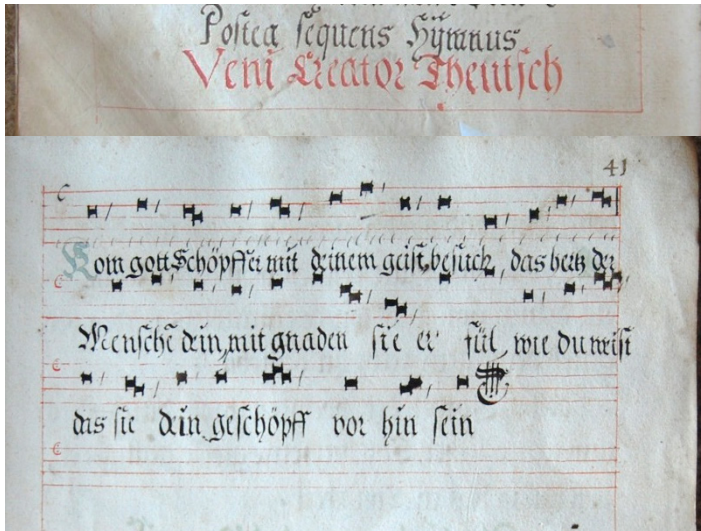 Postea sequens Hÿmnus
Veni Creator Theutsch
41
Kom gott Schöpffer mit deinem geist, besuch, das hertz der
Mensche dein, mit gnaden sie er fül, wie du weist
das sie dein geschöpff vor hin sein